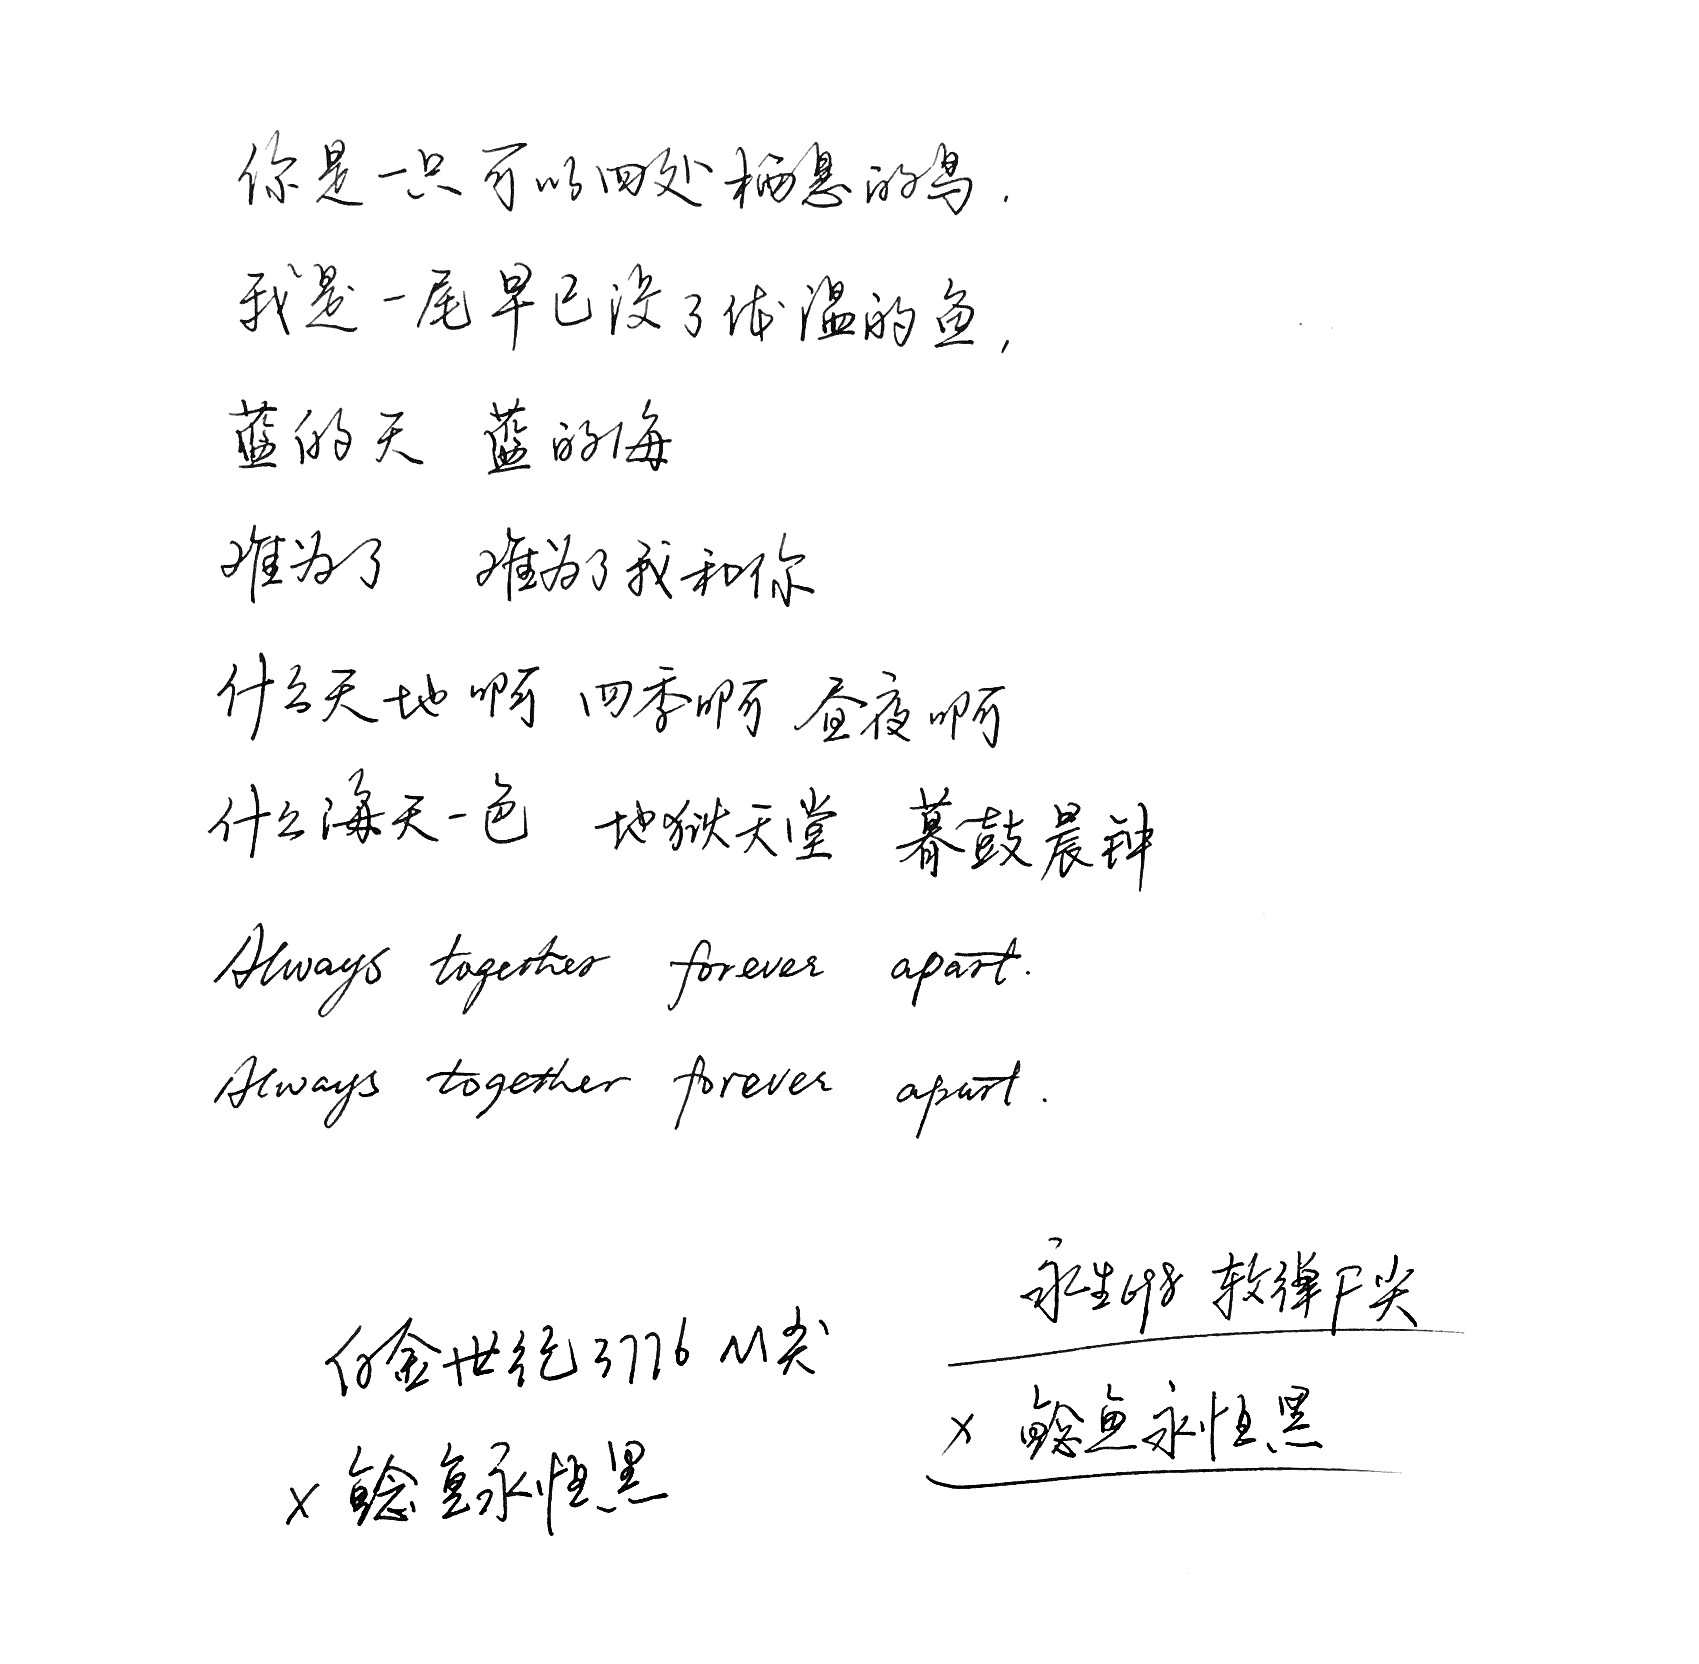 你是一只可以四处栖息的鸟.
我是一尾早已没了体温的鱼,
蓝的天 蓝的海
难为了 难为了我和你
什么天地啊 四季啊 昼夜啊
什么海天一色 地狱天堂 暮鼓晨钟
Always together forever apart.
Always together forever apart.
白金世纪3776 M尖
x 鲶鱼永恒黑
永生698 软弹F尖
x 鲶鱼永恒黑